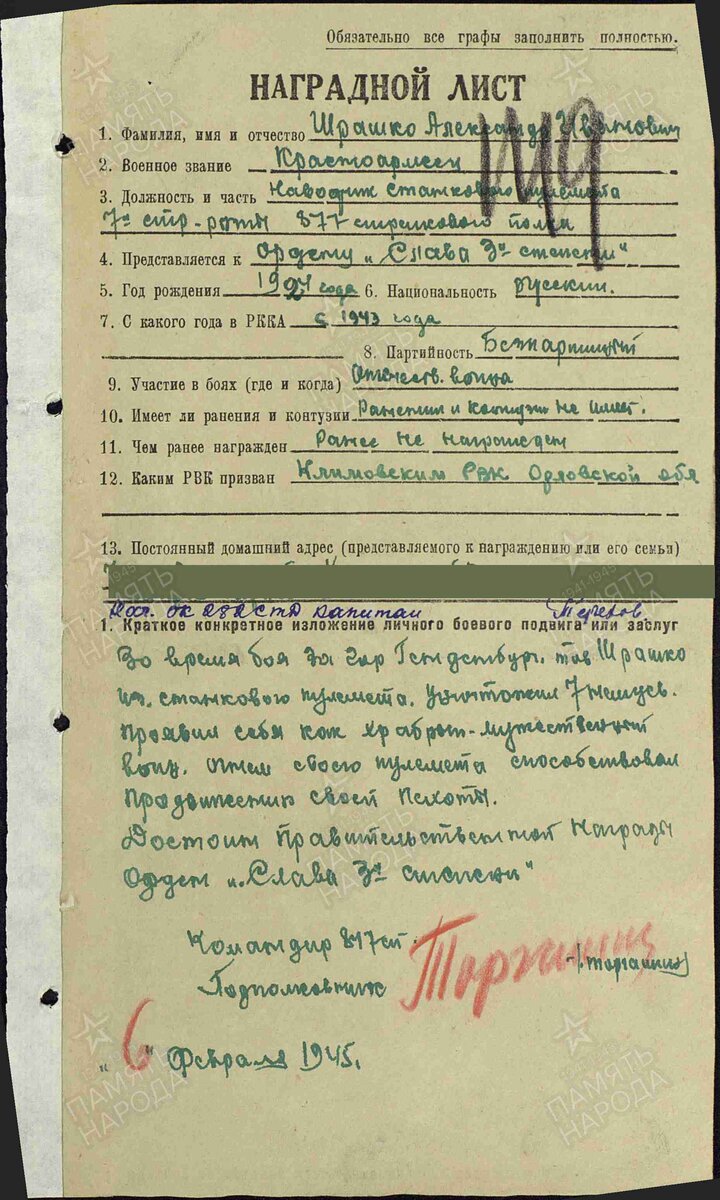 Обязательно все графы заполнить полностью.
НАГРАДНОЙ ЛИСТ
1. Фамилия, имя и отчество Шрашко Александр Иванович
2. Военное звание Красноармеец
3. Должность и часть Наводчик станкового пулемета
7й стр-роты 877 стрелкового полка
4. Представляется к Ордену „Слава 3й степени"
5. Год рождения 1927 года 6. Национальность русский.
7. С какого года в РККА с 1943 года
8. Партийность Безпартийный
9. Участие в боях (где и когда) Отечеств. война
10. Имеет ли ранения и контузии Ранений и контузий не имеет.
11. Чем ранее награжден Ранее не награжден
12. Каким РВК призван Климовским РВК Орловской обл
13. Постоянный домашний адрес (представляемого к награждению или его семьи)
капитан
1. Краткое конкретное изложение личного боевого подвига или заслуг
Во время боя за гор тов Шрашко
из станкового пулемета. Уничтожил 7 немцев.
Проявил себя как храбрый-мужественный
воин. Огнем своего пулемета способствовал
Продвижению своей Пехоты.
Достоин Правительственной Награды
Орден „Слава 3й степени"
Командир 877 сп
Подполковник
„6" Февраля 1945.
ПАМЯТЬ НАРОДА